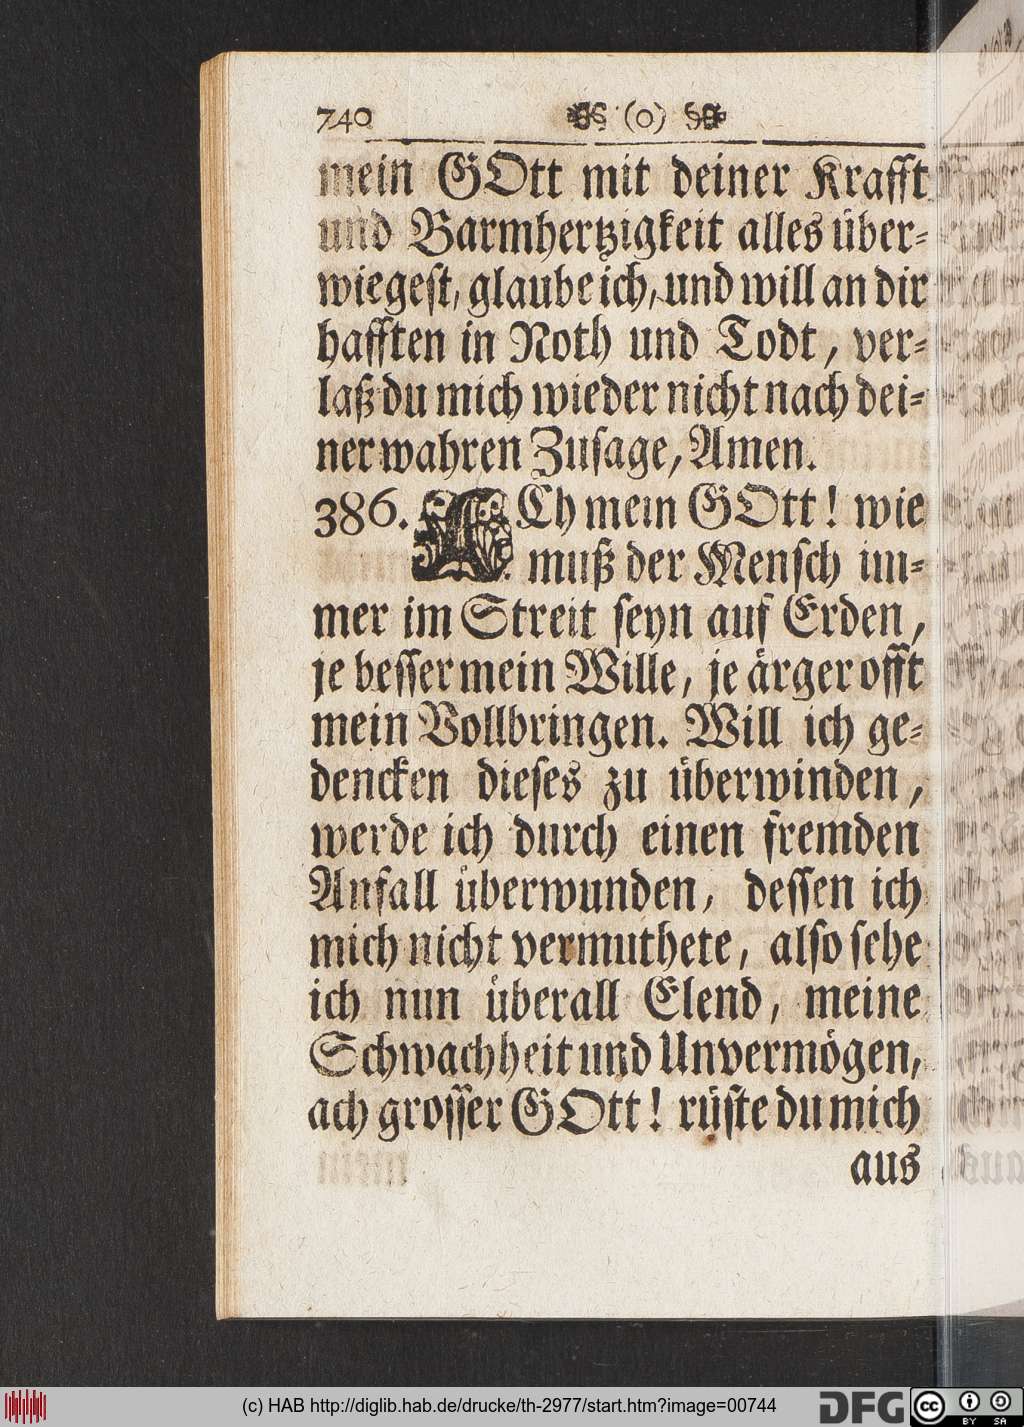 740 (o)
mein GOtt mit deiner Krafft
und Barmhertzigkeit alles über-
wiegest, glaube ich, und will an dir
hafften in Noth und Todt, ver-
laß du mich wieder nicht nach dei-
ner wahren Zusage, Amen.
386. ACh mein GOtt! wie
muß der Mensch im-
mer im Streit seyn auf Erden,
je besser mein Wille, je ärger offt
mein Vollbringen. Will ich ge-
dencken dieses zu überwinden,
werde ich durch einen fremden
Anfall überwunden, dessen ich
mich nicht vermuthete, also sehe
ich nun überall Elend, meine
Schwachheit und Unvermögen,
ach grosser GOtt! rüste du mich
aus
(c) HAB http://diglib.hab.de/drucke/th-2977/start.htm?image=00744
DFG
cc BY SA